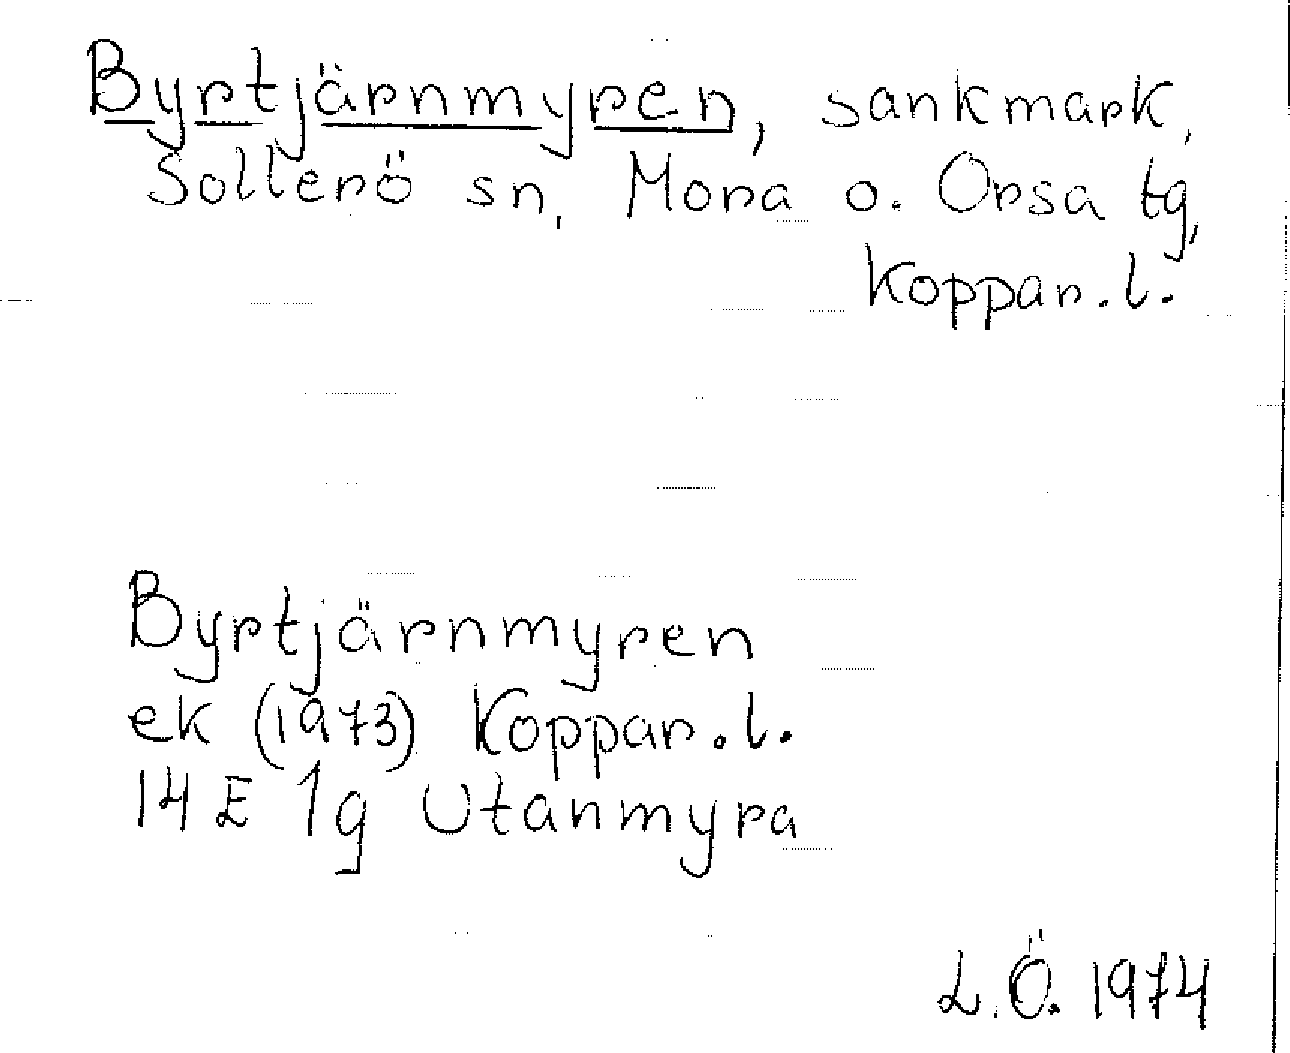 Byrtjärnmyren, sankmark,
Sollerö sn, Mora o. Orsa tg,
Koppar.l.
Byrtjärnmyren
ek (1973) Koppar.l.
14 E 1g Utanmyra
L.Ö. 1974